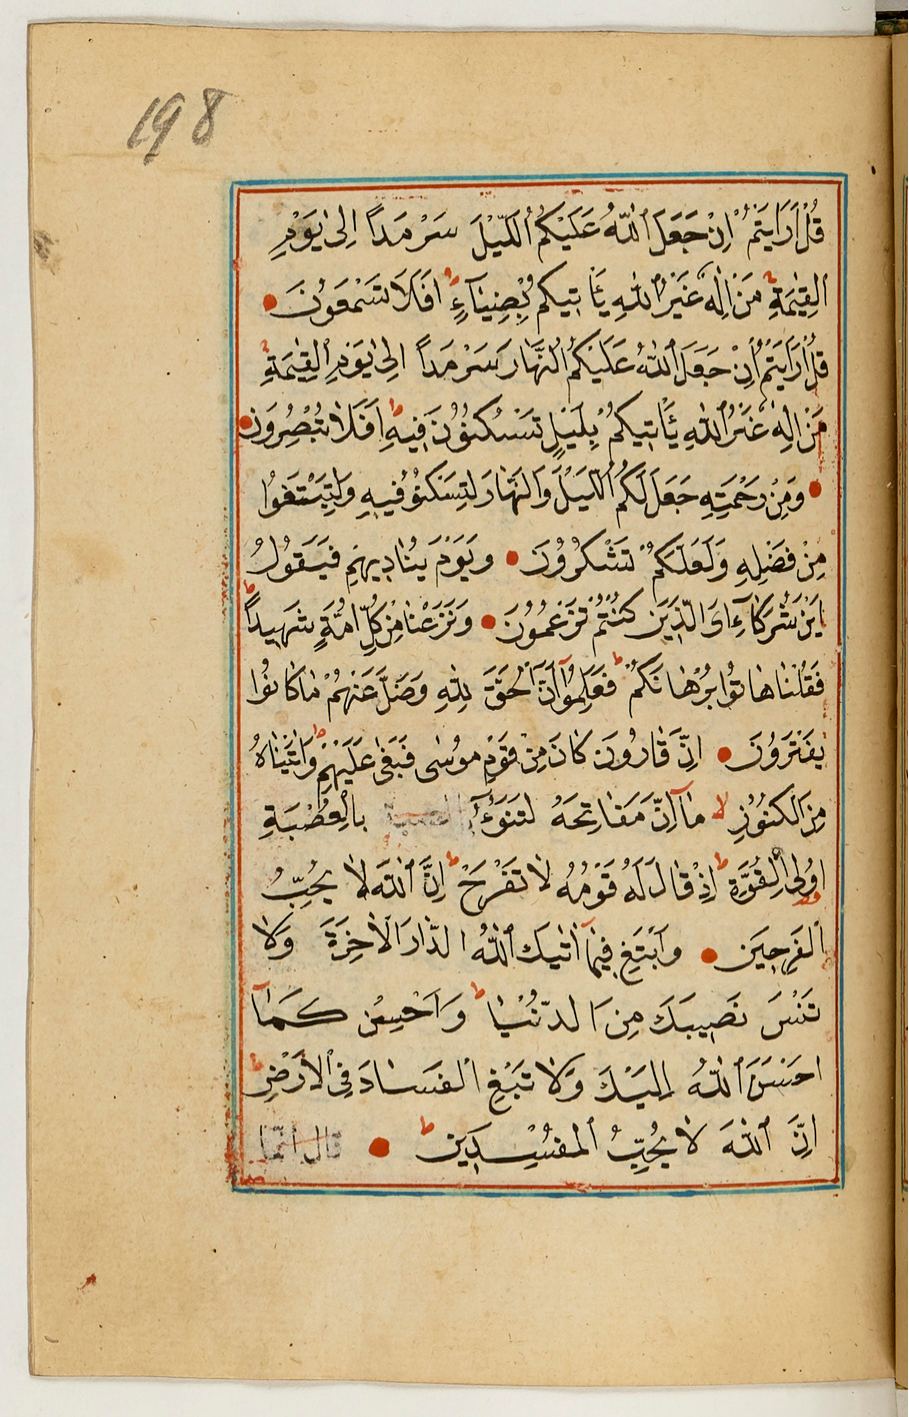 198
قُلْ اَرَاَيْتُمْ اِنْ جَعَلَ ٱللّٰهُ عَلَيْكُمُ ٱلَّيْلَ سَرْمَداً اِلٰى يَوْمِ
ٱلْقِيٰمَةِ مَنْ اِلٰهٌ غَيْرُ ٱللّٰهِ يَأْتِيكُمْ بِضِيَآءٍ اَفَلَا تَسْمَعُوْنَ
قُلْ اَرَاَيْتُمْ اِنْ جَعَلَ ٱللّٰهُ عَلَيْكُمُ ٱلنَّهَارَ سَرْمَداً اِلٰى يَوْمِ ٱلْقِيٰمَةِ
مَنْ اِلٰهٌ غَيْرُ ٱللّٰهِ يَأْتِيكُمْ بِلَيْلٍ تَسْكُنُوْنَ فِيهِ اَفَلَا تُبْصِرُوْنَ
وَمِنْ رَحْمَتِهِ جَعَلَ لَكُمُ ٱلَّيْلَ وَالنَّهَارَ لِتَسْكُنُوْ فِيهِ وَلِتَبْتَغُوْا
مِنْ فَضْلِهِ وَلَعَلَّكُمْ تَشْكُرُوْنَ وَيَوْمَ يُنَادِيهِمْ فَيَقُوْلُ
اَيْنَ شُرَكَآءِىَ الَّذِيْنَ كُنْتُمْ تَزْعُمُوْنَ وَنَزَعْنَا مِنْ كُلِّ اُمَّةٍ شَهِيداً
فَقُلْنَا هَاتُوْا بُرْهَانَكُمْ فَعَلِمُوْٓا اَنَّ ٱلْحَقَّ لِلّٰهِ وَضَلَّ عَنْهُمْ مَا كَانُوْا
يَفْتَرُوْنَ اِنَّ قَارُوْنَ كَانَ مِنْ قَوْمِ مُوْسٰى فَبَغٰى عَلَيْهِمْ وَاٰتَيْنَاهُ
مِنَ ٱلْكُنُوْزِ مَآ اِنَّ مَفَاتِحَهُ لَتَنُوْٓءُ بِالْعُصْبَةِ
اُوْلِى ٱلْقُوَّةِ اِذْ قَالَ لَهُ قَوْمُهُ لَا تَفْرَحْ اِنَّ ٱللّٰهَ لَا يُحِبُّ
ٱلْفَرِحِيْنَ وَٱبْتَغِ فِيمَآ اٰتٰيكَ ٱللّٰهُ الدَّارَ الْاٰخِرَةَ وَلَا
تَنْسَ نَصِيبَكَ مِنَ الدُّنْيَا وَاَحْسِنْ كَمَآ
اَحْسَنَ ٱللّٰهُ اِلَيْكَ وَلَا تَبْغِ ٱلْفَسَادَ فِى ٱلْاَرْضِ
اِنَّ ٱللّٰهَ لَا يُحِبُّ ٱلْمُفْسِدِيْنَ قال انما